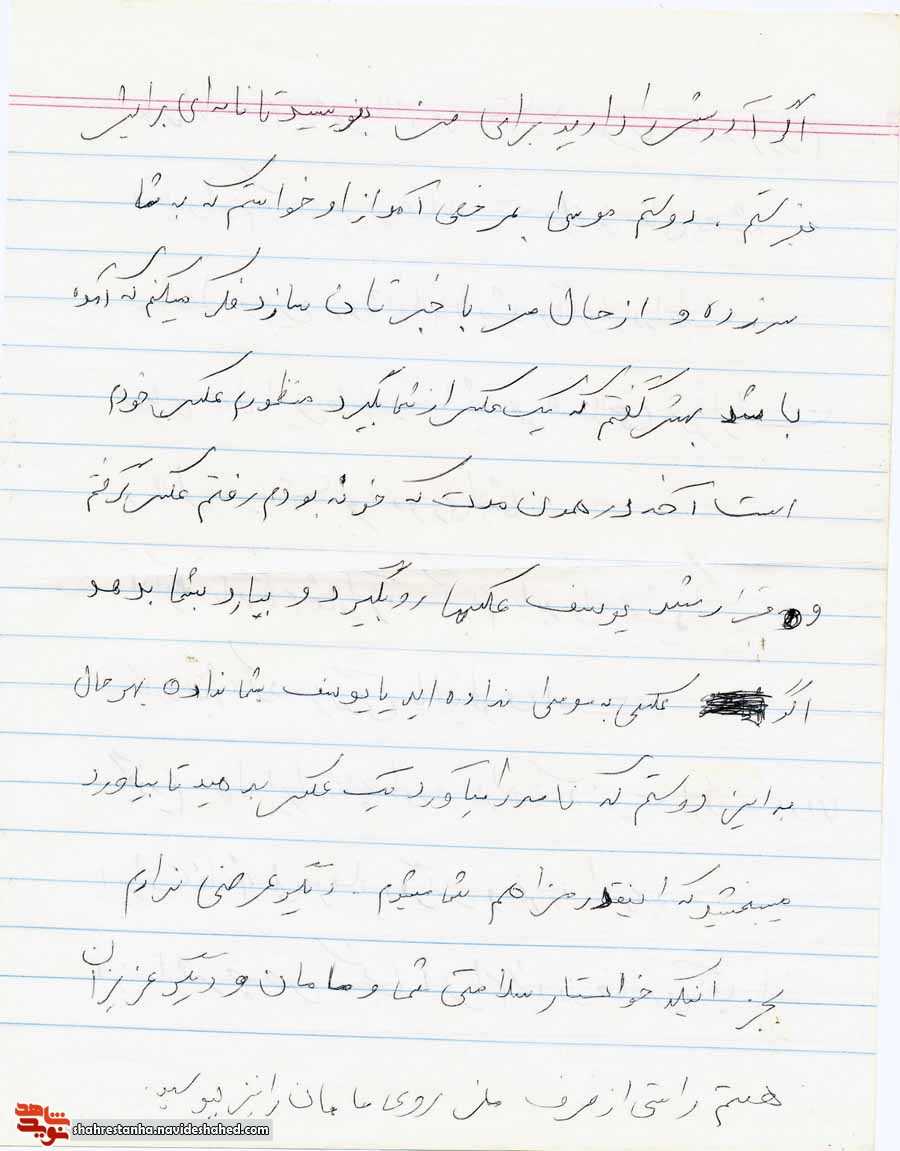 اگر آدرسش را دارید برای من بنویسید تا نامه‌ای برایش
بفرستم . دوستم موسی بمرخصی آمد از او خواستم که به شما
سر زده و از حال من با خبرتان سازد فکر میکنم که آمده
باشد بهش گفتم که یک عکس از شما بگیرد منظورم عکس خودم
است آخه در همون مدت که خونه بودم رفتم عکس گرفتم
و قرار شد یوسف عکسها رو بگیرد و بیارد بشما بدهد
اگر عکسی به موسی نداده اید یا یوسف بشما نداده بهر حال
به این دوستم که نامه را میآورد یک عکس بدهید تا بیاورد
میبخشید که اینقدر مزاهم شما میشوم . دیگر عرضی ندارم
بجز اینکه خواستار سلامتی شما و مامان و دیگر عزیزان
هستم راستی از طرف من روی مامان را نیز ببوسید.
شاهد
نوید
shahrestanha.navideshahed.com